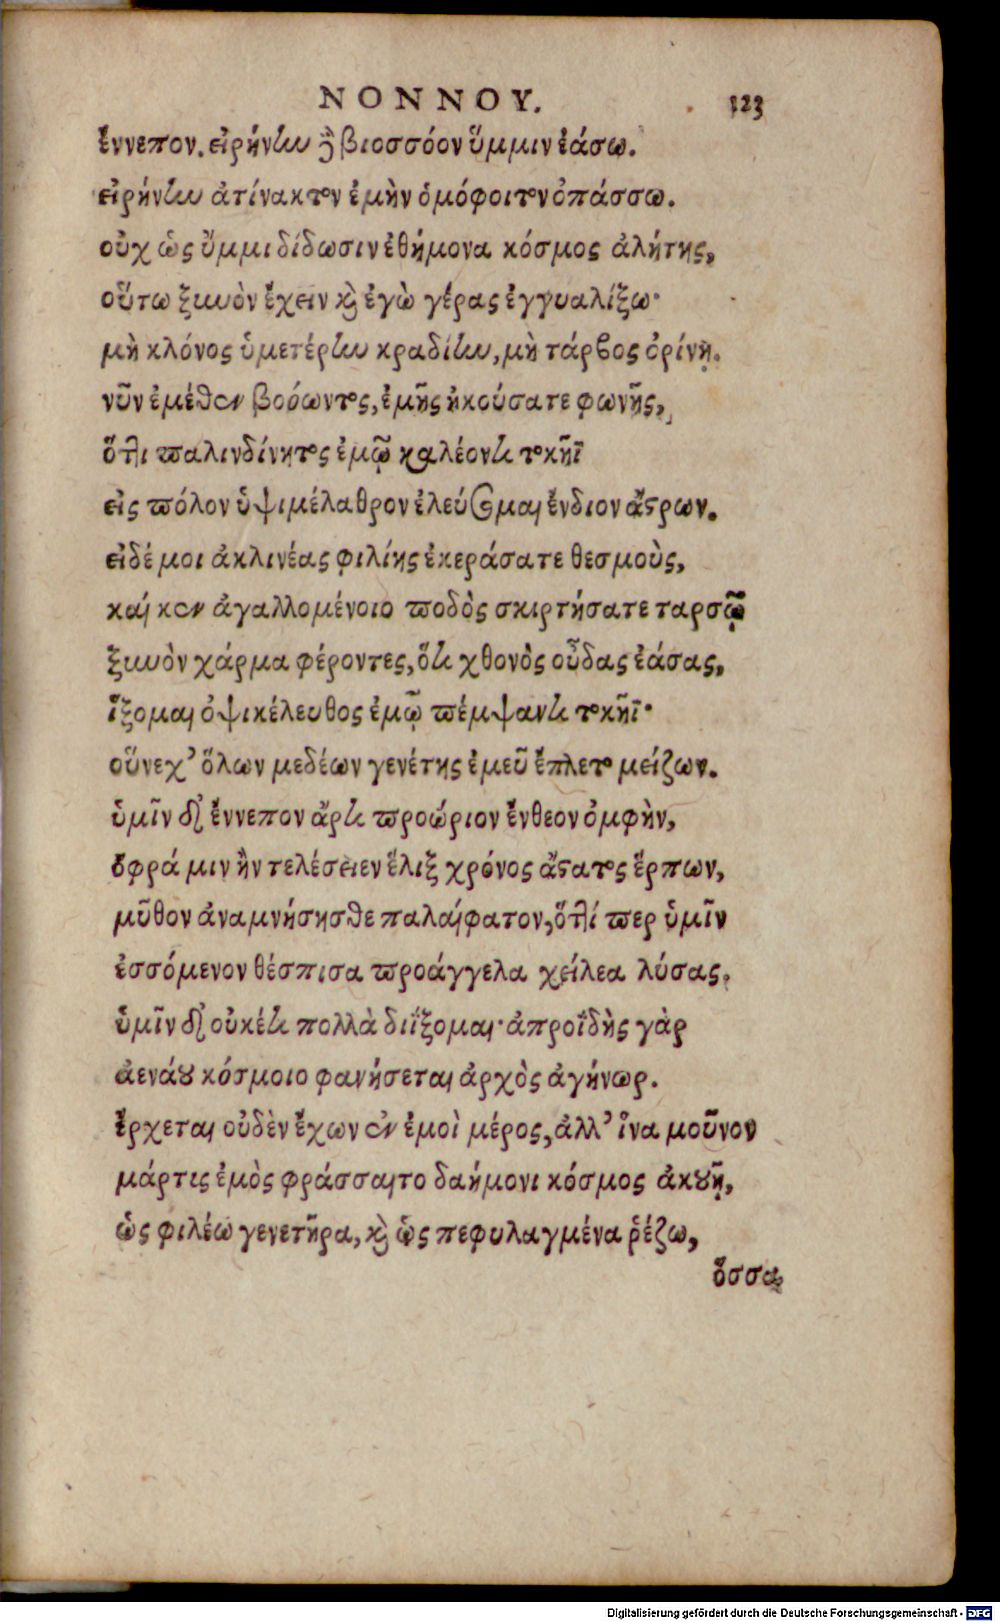 ΝΟΝΝΟΥ. 123
ἔννεπον. εἰρήνην δὲ βιοσσόον ὔμμιν ἐάσω.
εἰρήνην ἀτίνακτον ἐμὴν ὁμόφοιτον ὀπάσσω.
οὐχ ὡς ὔμμι δίδωσιν ἐθήμονα κόσμος ἀλήτης,
οὕτω ξυνὸν ἔχειν καὶ ἐγὼ γέρας ἐγγυαλίξω·
μὴ κλόνος ὑμετέρην κραδίην, μὴ τάρβος ὀρίνῃ.
νῦν ἐμέθεν βοόωντος, ἐμῆς ἠκούσατε φωνῆς,
ὅτι παλινδίνητος ἐμῷ καλέοντι τοκῆϊ
εἰς πόλον ὑψιμέλαθρον ἐλεύσομαι ἔνδιον ἄστρων.
εἰδέ μοι ἀκλινέας φιλίης ἐκεράσατε θεσμοὺς,
καί κεν ἀγαλλομένοιο ποδὸς σκιρτήσατε ταρσῷ
ξυνὸν χάρμα φέροντες, ὅτι χθονὸς οὖδας ἐάσας,
ἵξομαι ὀψικέλευθος ἐμῷ πέμψαντι τοκῆϊ·
οὕνεχ' ὅλων μεδέων γενέτης ἐμεῦ ἔπλετο μείζων.
ὑμῖν δ' ἔννεπον ἄρτι προώριον ἔνθεον ὀμφὴν,
ὄφρά μιν ἢν τελέσειεν ἕλιξ χρόνος ἄστατος ἕρπων,
μῦθον ἀναμνήσησθε παλαίφατον, ὅτί περ ὑμῖν
ἐσσόμενον θέσπισα προάγγελα χείλεα λύσας.
ὑμῖν δ' οὐκέτι πολλὰ διΐξομαι· ἀπροϊδὴς γὰρ
ἀενάου κόσμοιο φανήσεται ἀρχὸς ἀγήνωρ.
ἔρχεται οὐδὲν ἔχων ἐν ἐμοὶ μέρος, ἀλλ' ἵνα μοῦνον
μάρτις ἐμὸς φράσσαιτο δαήμονι κόσμος ἀκουῇ,
ὡς φιλέω γενετῆρα, καὶ ὡς πεφυλαγμένα ῥέζω,
ὅσσα
Digitalisierung gefördert durch die Deutsche Forschungsgemeinschaft - DFG